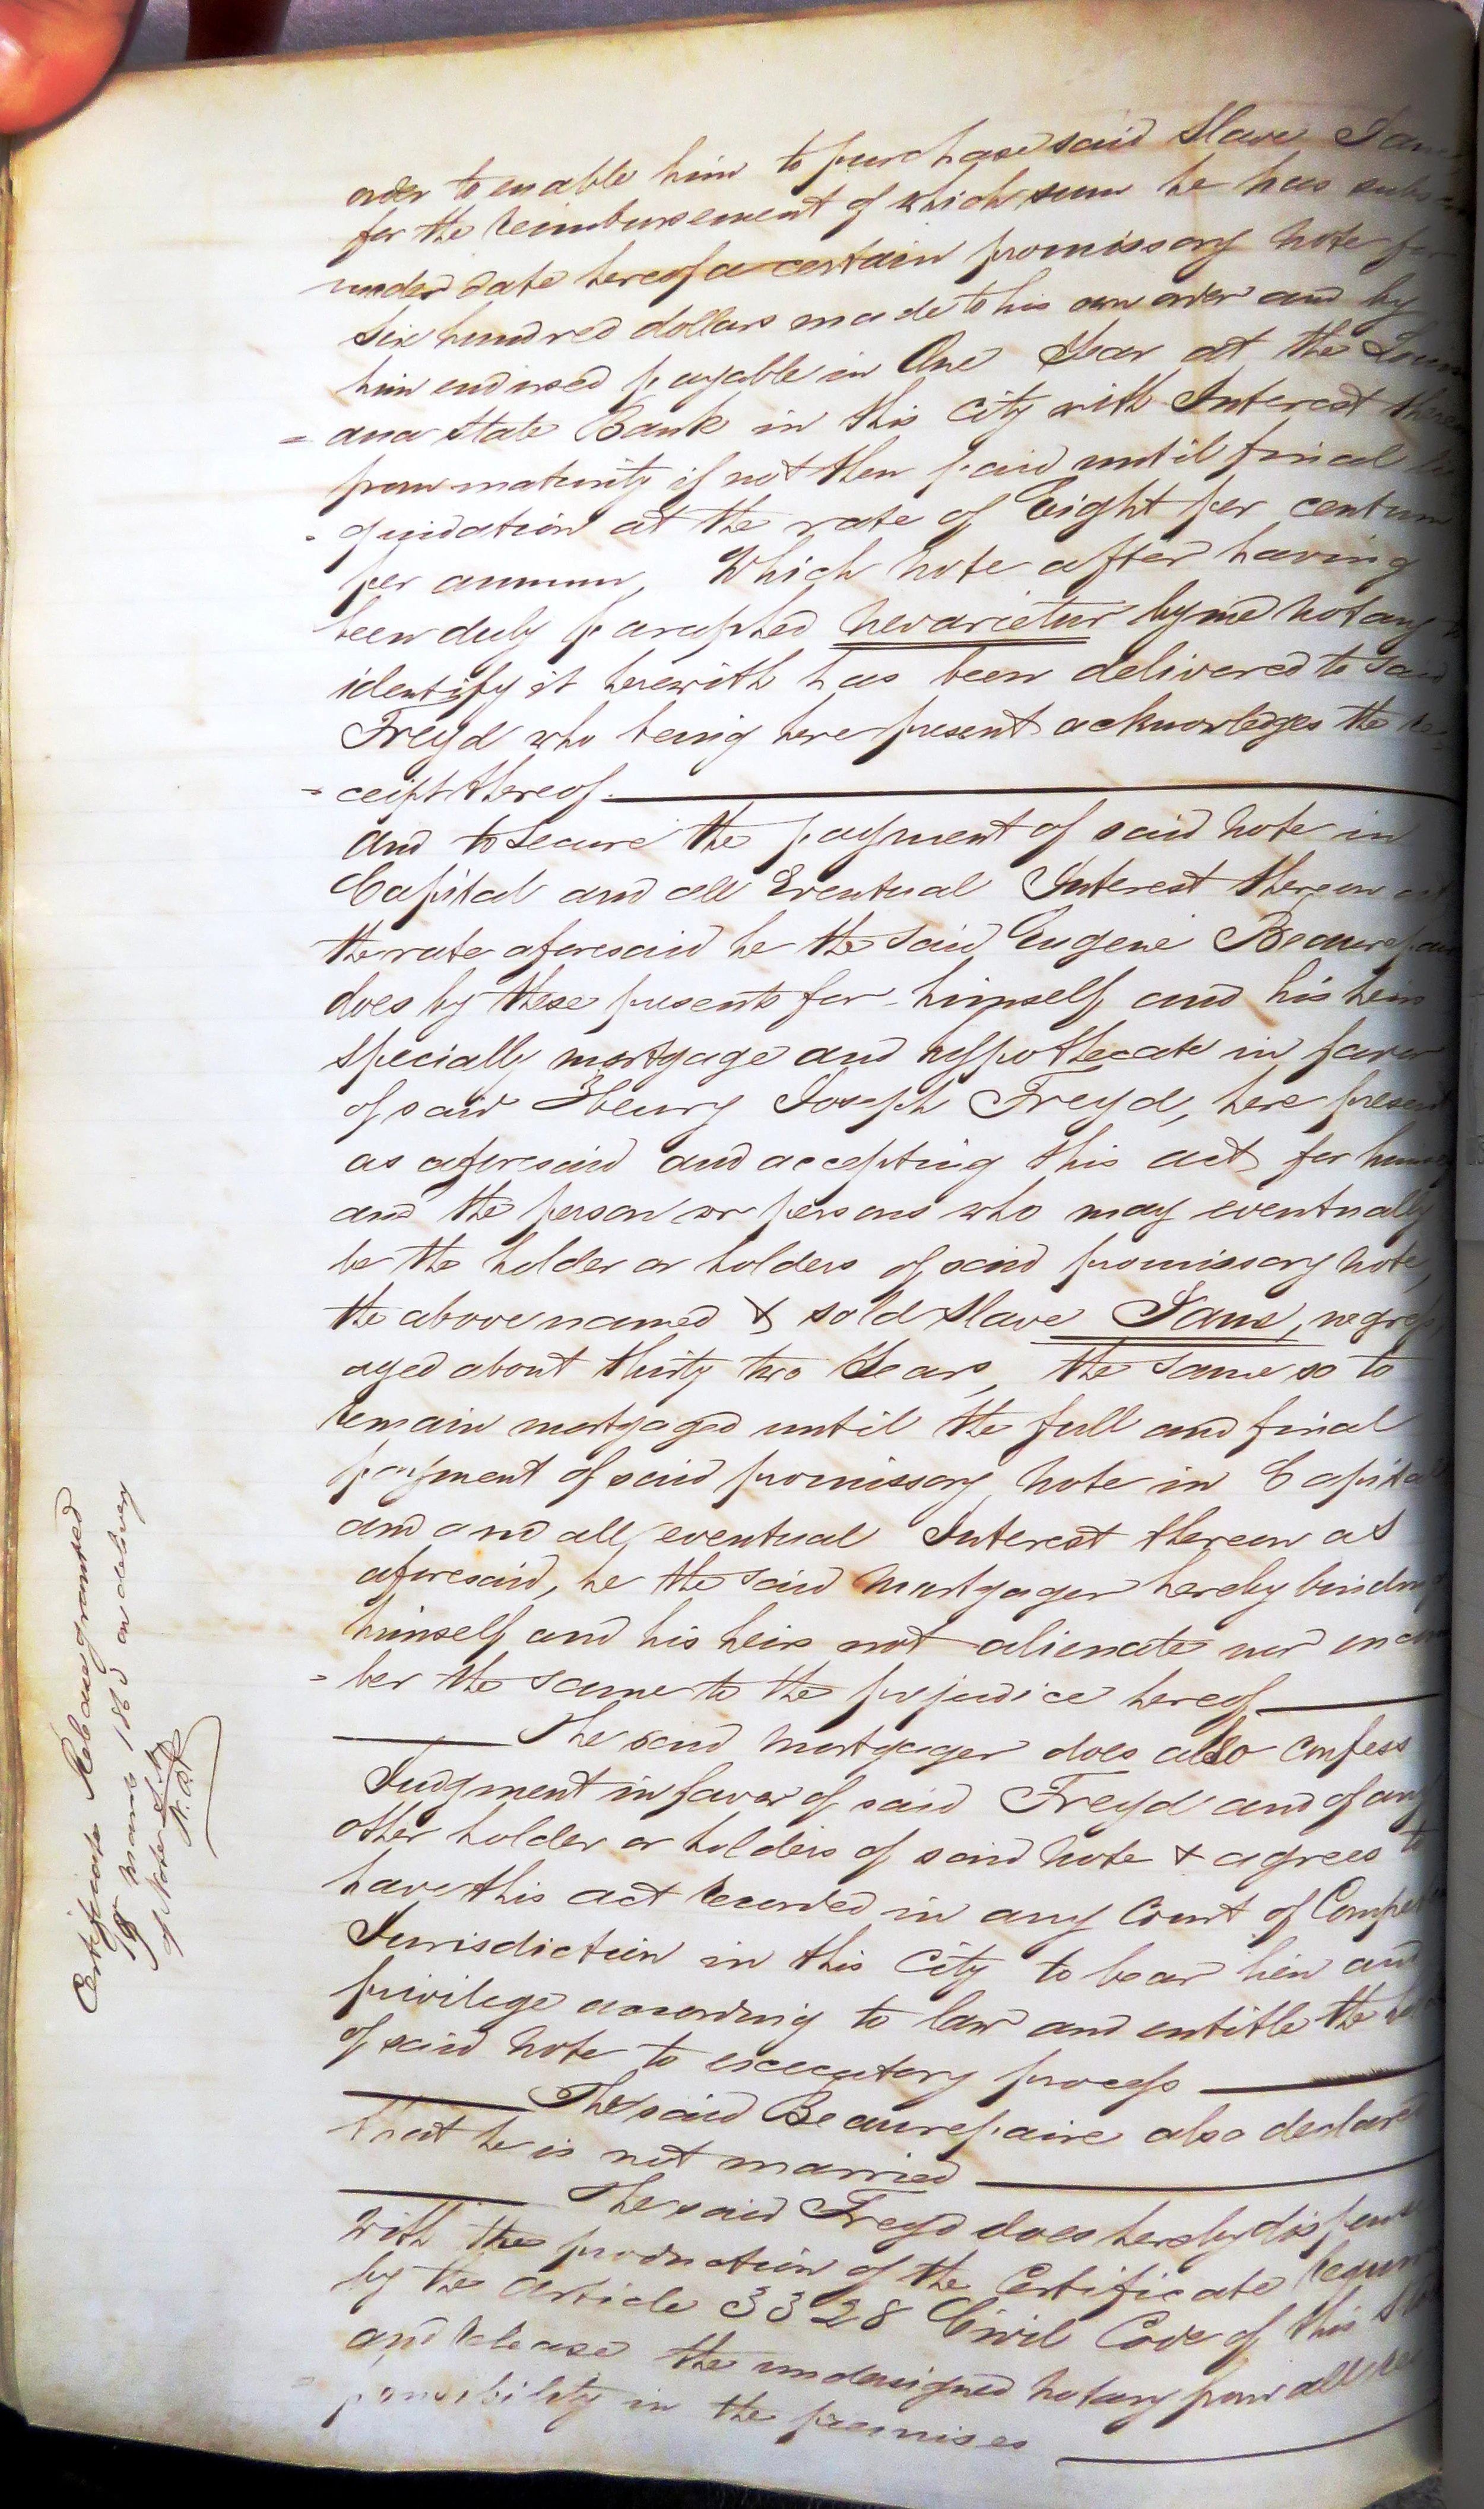 order to enable him to purchase said Slave Jane
for the reimbursement of which sum he has
under date hereof a certain promissory Note for
Six hundred dollars made to his own order and by
him endorsed payable in One Year at the Loui
= ana State Bank in this City with Interest thereon
from maturity if not then paid until final li
= quidation at the rate of Eight per centum
per annum, Which Note after having
been duly paraphed nevarietur by me Notary to
identify it herewith has been delivered to said
Freyd who being here present acknowledges the re=
= ceipt thereof.
And to Secure the payment of said Note in
Capital and all Eventual Interest thereon at
the rate aforesaid he the said Eugene Beaurepaire
does by these presents for himself and his heirs
Specially mortgage and hypothecate in favor
of said Henry Joseph Freyd, here present
as aforesaid and accepting this act for himself
and the person or persons who may eventually
be the holder or holders of said promissory Note,
the above named & sold Slave Jane, negress,
aged about thirty two Years, the same so to
remain mortgaged until the full and final
payment of said promissory Note in Capital
and and all eventual Interest thereon as
aforesaid, he the said Mortgagor hereby binding
himself and his heirs not alienate nor encum
= ber the same to the prejudice hereof
The said Mortgagor does also Confess
Judgment in favor of said Freyd and of any
other holder or holders of said Note & agrees to
have this act recorded in any Court of Competent
Jurisdiction in this City to bear lien and
privilege according to law and entitle the
of said Note to executory process
The said Beaurepaire also declared
that he is not married
The said Freyd does hereby dispense
With the production of the Certificate requir
by the article 3328 Civil Code of this State
and release the undersigned Notary from all res
= ponsibility in the premises
Certificate Release granted
March 186 on delivery
of Note